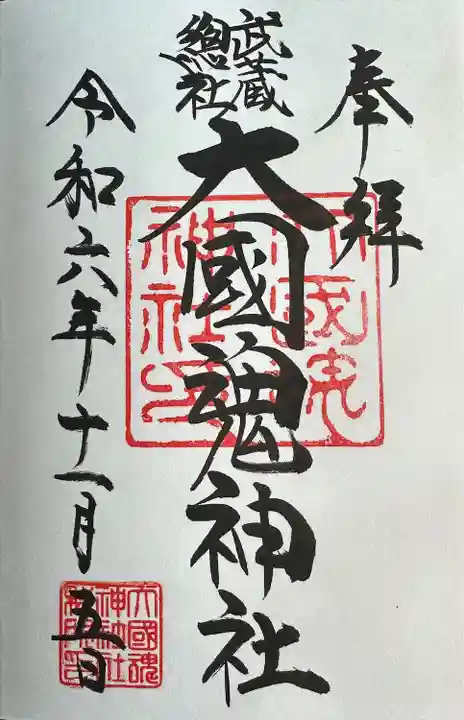 奉拝
武蔵
總社
大國魂神社
令和六年十一月五日
大國魂
神社